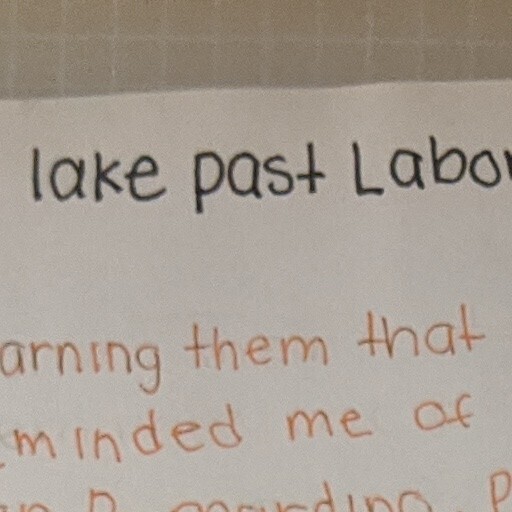 lake past Labor
arning them that
minded me of